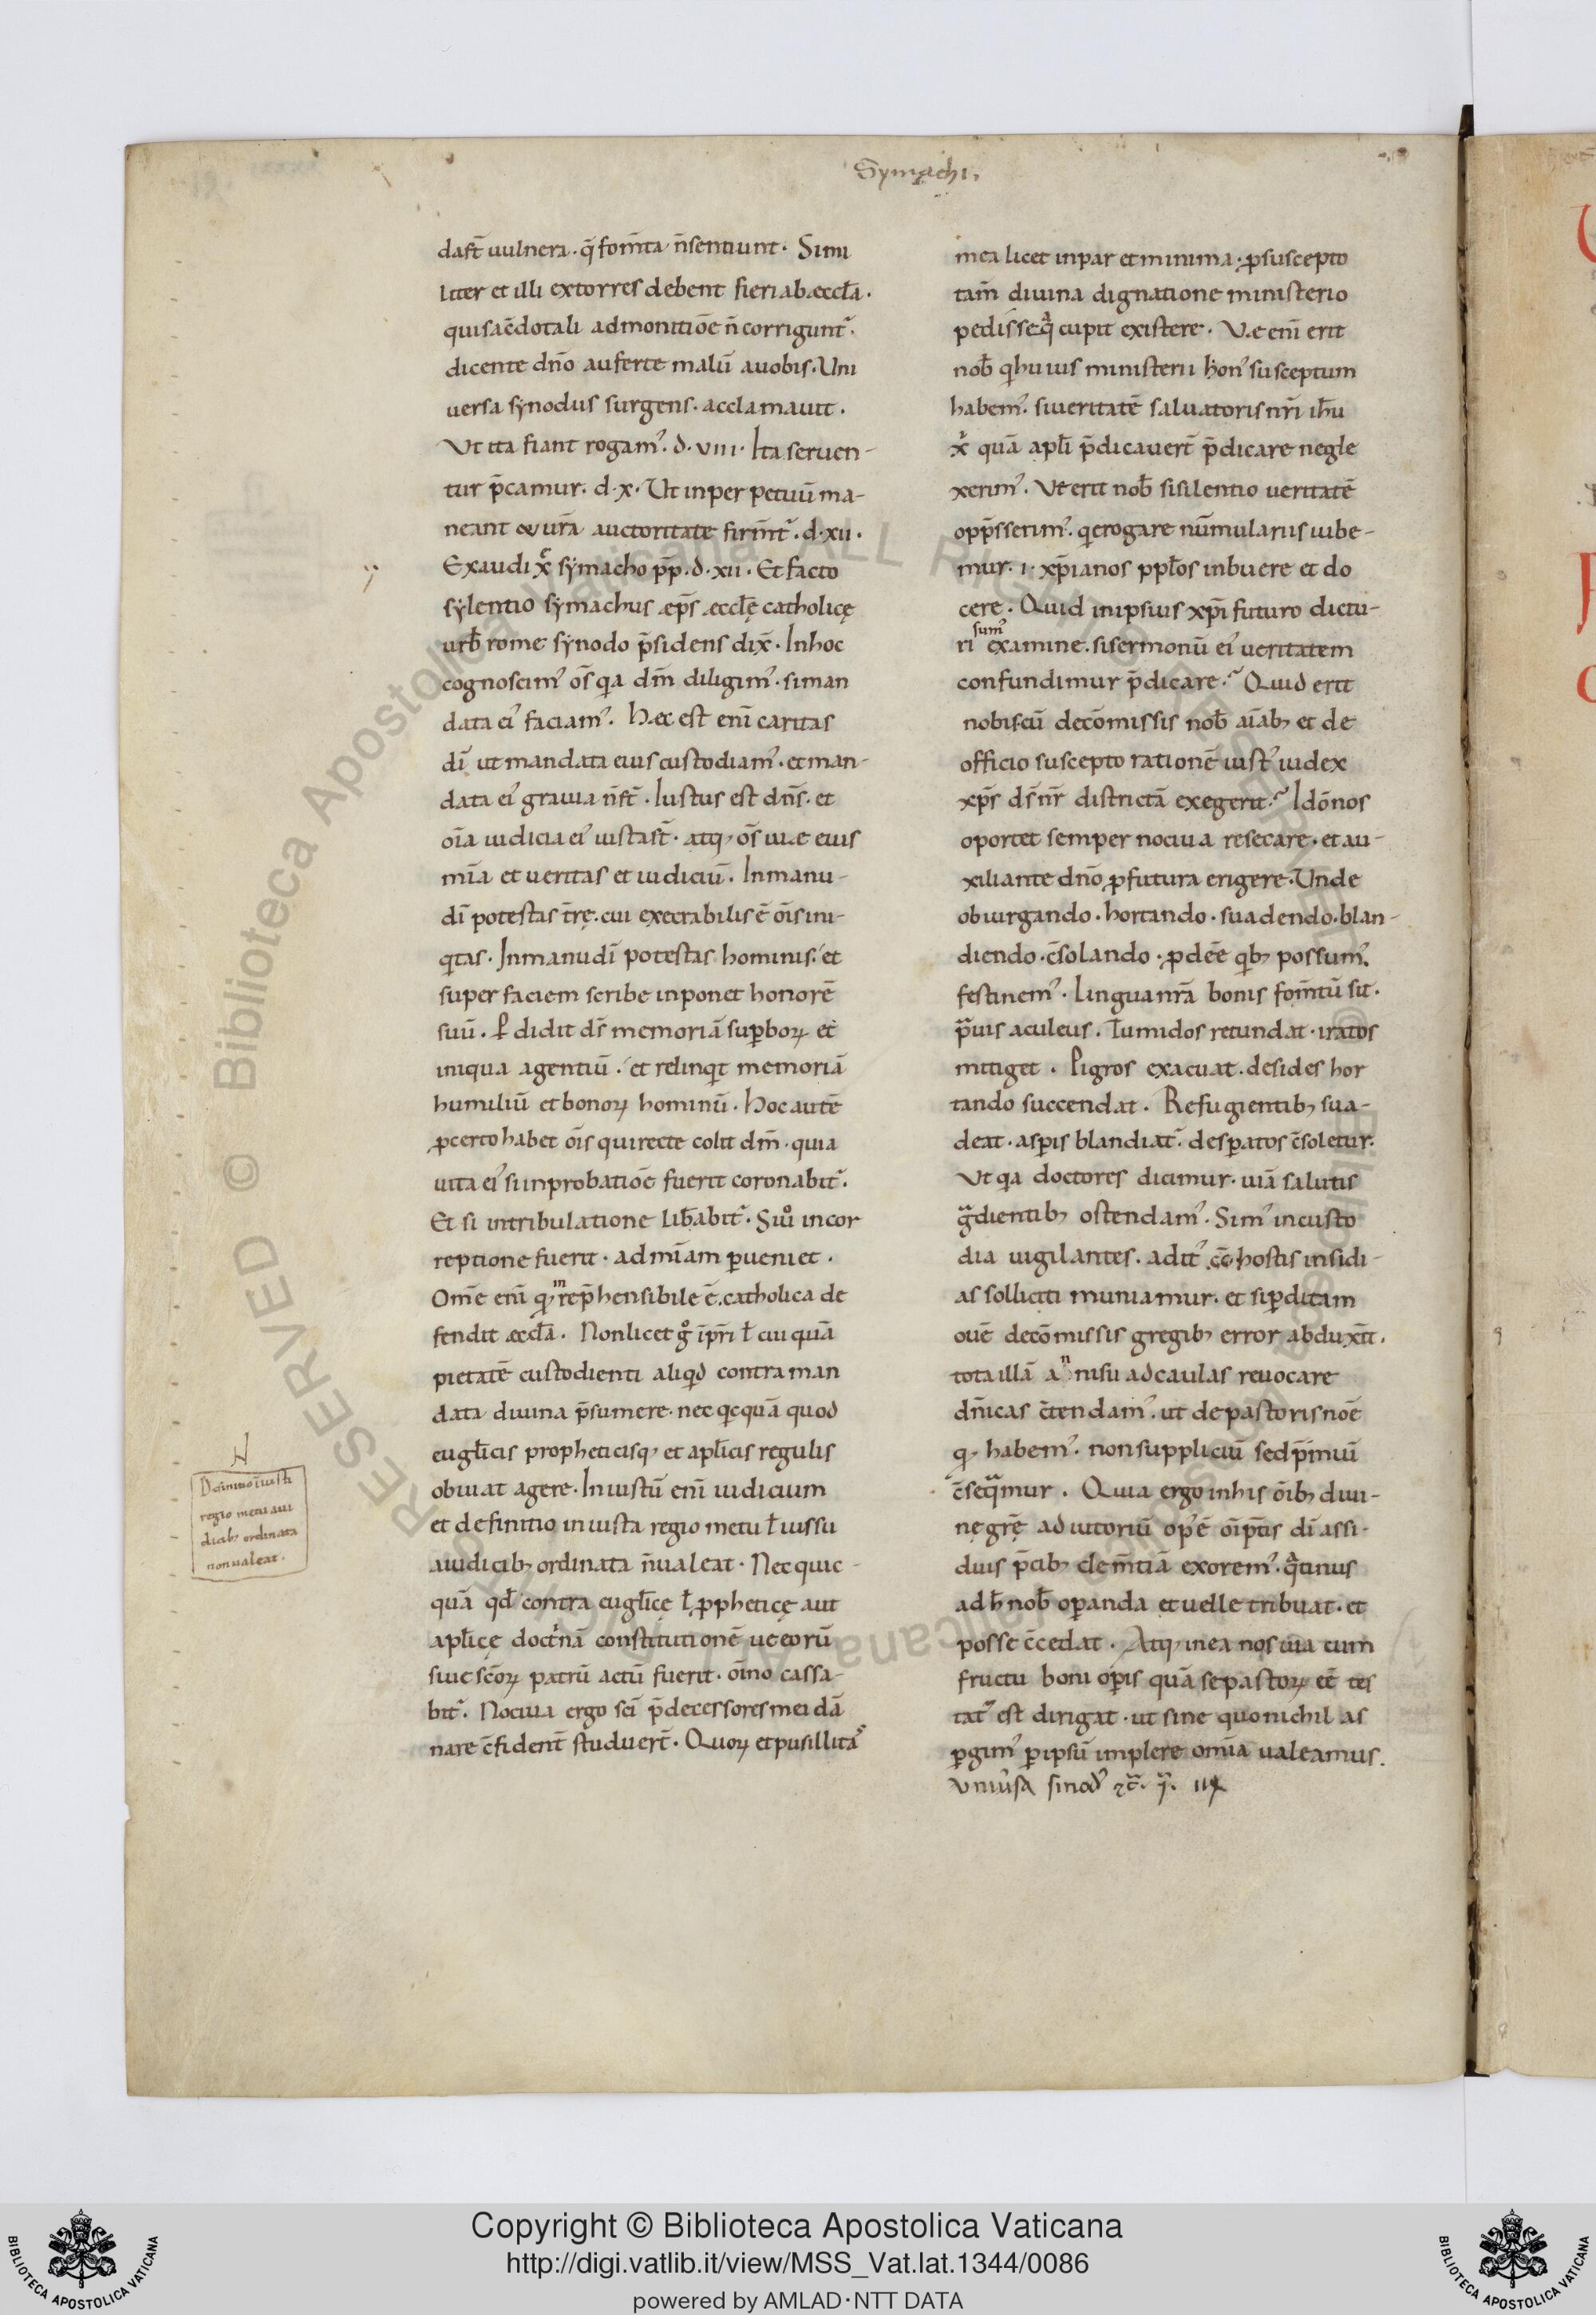 Symachi,
daſt̄ uulnera. q̄ fom̄ta n̄sentiunt. Simi
liter et illi extorres debent fieri ab æccl̄a.
qui sac̄dotali admonitiōe n̄ corrigunt᷑.
dicente dn̄o auferte malū auobis. Uni
uersa synodus surgens. acclamauit.
Ut ita fiant rogam᾿. d. viii. Ita seruen-
tur p̄camur. d. x. Ut in perpetuū ma-
neant & ur̄a auctoritate firm̄t᷑. d. xii.
Exaudi x̄ symacho p̄p. d. xii. Et facto
sylentio symachus æp̄s æccl̄ę catholicę
urƀ rome synodo p̄sidens dix̄. In hoc
cognoscim᾿ ōs qia dm̄ diligim᾿. si man
data ei᾿ faciam᾿. Hæc est eni̅ caritas
di̅ ut mandata eius custodiam᾿. et man-
data ei᾿ grauia n̄ſt̄. Iustus est dn̄s. et
oi̅a iudicia ei᾿ iustaſt̄. atq; ōs uiæ eius
mi̅a et ueritas et iudiciū. In manu-
di̅ potestas t̄rę. cui execrabilis ē oi̅s ini-
qitas. In manu di̅ potestas hominis. et
super faciem scribe inponet honorē
suū. P̱didit ds̄ memoriā sup̱boꝝ et
iniqua agentiū. et relinqit memoriā
humiliū et bonoꝝ hominū. Hoc autē
ꝓcerto habet oi̅s qui recte colit dm̄. quia
uita ei᾿ si inprobatiōe fuerit coronabit᷑.
Et si intribulatione liƀabit᷑. Siuº incor
reptione fuerit. ad mi̅am ꝑueniet.
Om̄e eni̅ q irrep̄hensibile ē. catholica de
fendit æccl̄a. Non licet gº i̅pr̄i ł cui quā
pietatē custodienti aliqid contra man
data diuina p̄sumere. nec qicquā quod
eugl̄icis propheticisq; et apl̄icis regulis
obuiat agere. Iniustū eni̅ iudicium
et definitio iniusta regio metu ł iussu
aiudicib; ordinata n̄ualeat. Nec quic-
quā qđ contra eugl̄icę ł ꝓphetice aut
apl̄icę doctͥnā constitutionē ueeorū
siue sc̄oꝝ patrū actū fuerit. oi̅no cassa-
bit᷑. Nociua ergo sci̅ p̄decessores mei dā
nare c̄fident̄ studuert̄. Quoꝝ et pusillita᾿
H
Definitio i̅iusta
regio metu aiu
dicib; ordinata
non ualeat.
mea licet inpar et minima. ꝓsuscepto
tam̄ diuina dignatione ministerio
pedissequa cupit existere. Væ eni̅ erit
noƀ qi huius ministerii hon᾿ susceptum
habem᾿. si ueritatē saluatoris nr̄i ihu̅
x̄ quā apl̄i p̄dicauert̄ p̄dicare negle
xerim᾿. Væ erit noƀ si silentio ueritatē
opp̄sserim᾿. qi erogare nūmulariis iube-
mur. i. xp̄ianos ppl̄os inbuere et do
cere. Quid in ipsius xp̄i futuro dictu-
ri sum᾿ examine. si sermonū ei᾿ ueritatem
confundimur p̄dicare. Quid erit
nobiscū decōmissis noƀ ai̅ab; et de
officio suscepto rationē iust᾿ iudex
xp̄s ds̄ nr̄ districtā exegerit. Idō nos
oportet semper nociua resecare. et au-
xiliante dn̄o ꝓfutura erigere. Unde
obiurgando. hortando. suadendo. blan-
diendo. c̄solando. ꝓdeē qib; possum᾿.
festinem᾿. Lingua nr̄a bonis fom̄tū sit.
p̄uis aculeus. Tumidos retundat. iratos
mitiget. Pigros exacuat. desides hor
tando succendat. Refugientib; sua-
deat. asp̱is blandiat᷑. desp̱atos c̄soletur.
Ut qia doctores dicimur. uiā salutis
gͣdientib; ostendam᾿. Sim᾿ incusto
dia uigilantes. adit᾿ cō hostis insidi-
as solliciti muniamur. et si ꝑditam
ouē decōmissis gregib; error abduxit.
tota illā annisu ad caulas reuocare
dn̄icas c̄tendam᾿. ut depastoris noe̅
q; habem᾿. non suppliciū sed p̄miū
c̄seqͣmur. Quia ergo in his oi̅b; diui-
nę gr̄ę adiutoriū op᾿ ē oi̅p̄tis di̅ assi-
duis p̄cib; clem̄tiā exorem᾿. qͣtinus
ad h̄ noƀ oꝑanda et uelle tribuat. et
posse c̄cedat. Atq; in ea nos uia cum
fructu boni oꝑis quā se pastoꝝ eē tes
tat᾿ est dirigat. ut sine quo nichil as
ꝑgim᾿ ꝑ ipsū implere omi̅a ualeamus.